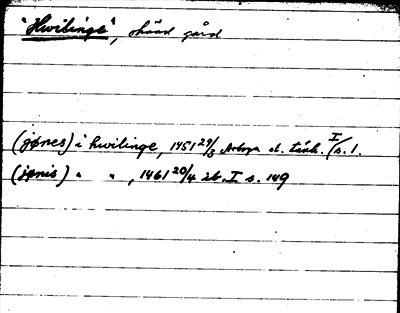 "Hwilinge", okänd gård
(jønes) i hwilinge, 1451 29/3 Arboga st. tänk. I s. 1.
(jønis) " " , 1461 20/4 ib. I s. 149